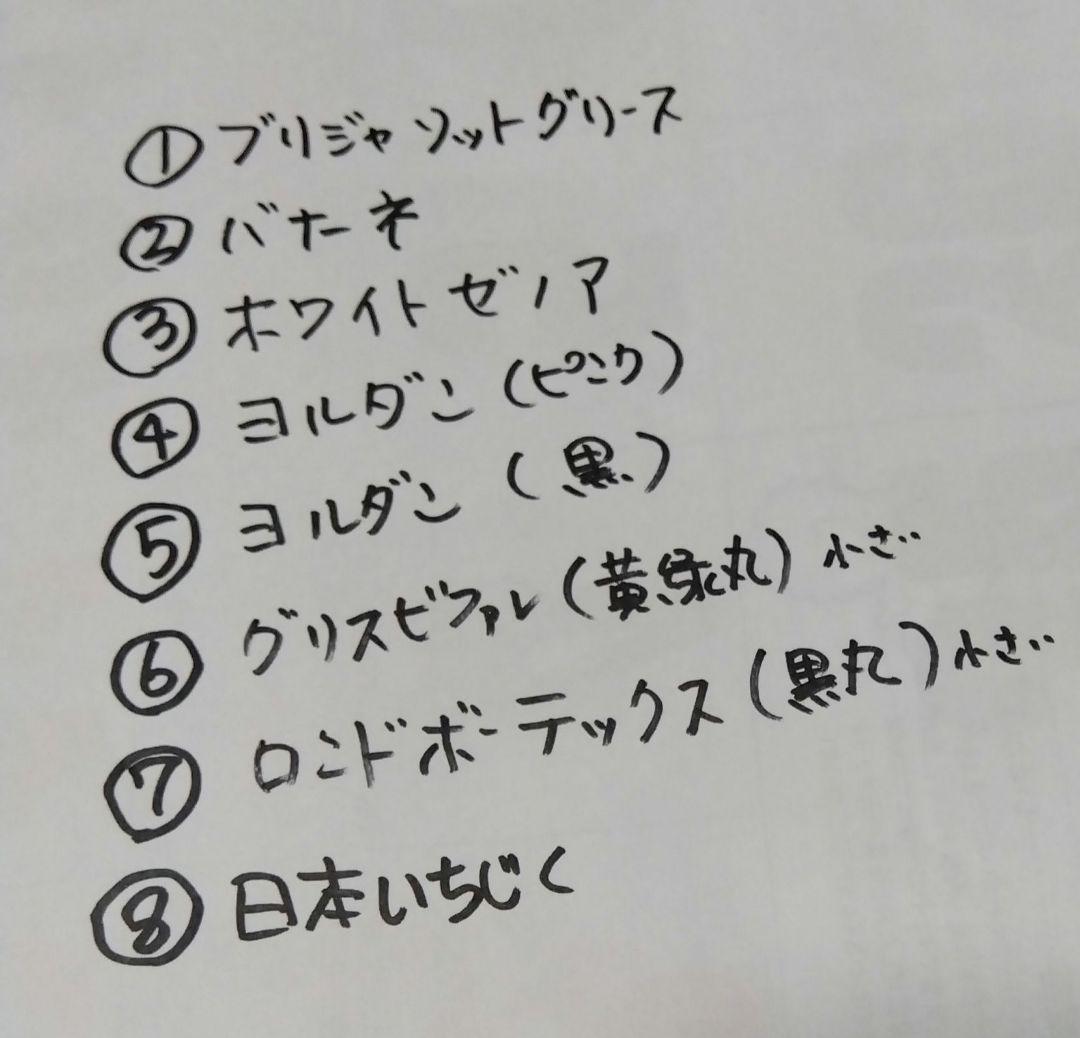 ① ブリジャソットグリース
② バナーネ
③ ホワイトゼノア
④ ヨルダン (ピンク)
⑤ ヨルダン (黒)
⑥ グリスビファル (黄緑丸) 小さい
⑦ ロンドボーテックス (黒丸) 小さい
⑧ 日本いちじく